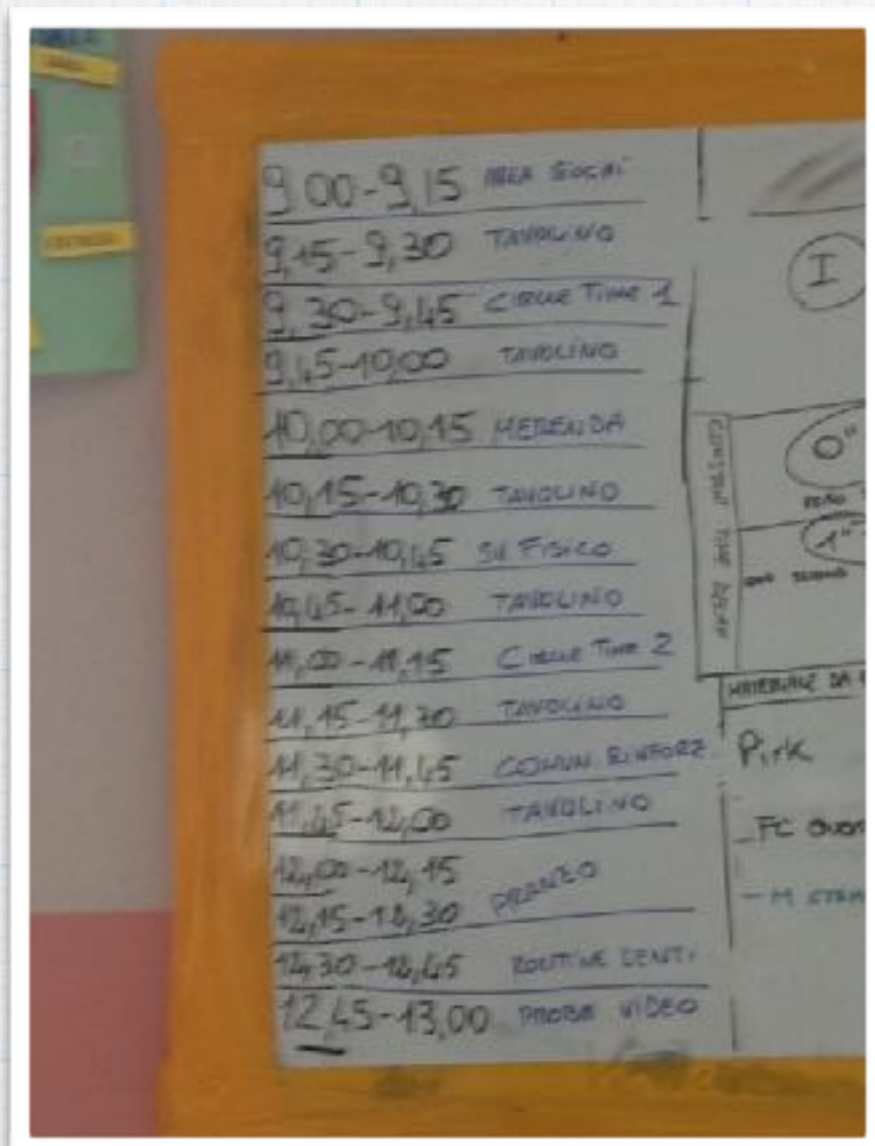 9,00-9,15 AREA GIOCHI
9,15-9,30 TAVOLINO
9,30-9,45 CIRCLE TIME 1
9,45-10,00 TAVOLINO
10,00-10,15 MERENDA
10,15-10,30 TAVOLINO
10,30-10,45 FISICO
10,45-11,00 TAVOLINO
11,00-11,15 CIRCLE TIME 2
11,15-11,30 TAVOLINO
11,30-11,45 COMUN. RINFORZ
11,45-12,00 TAVOLINO
12,00-12,15
12,15-12,30 PRANZO
12,30-12,45 ROUTINE DENTI
12,45-13,00 PROBE VIDEO
I
CONSTANT TIME DELAY
0"
1"
MATERIALE DA
FC
- M